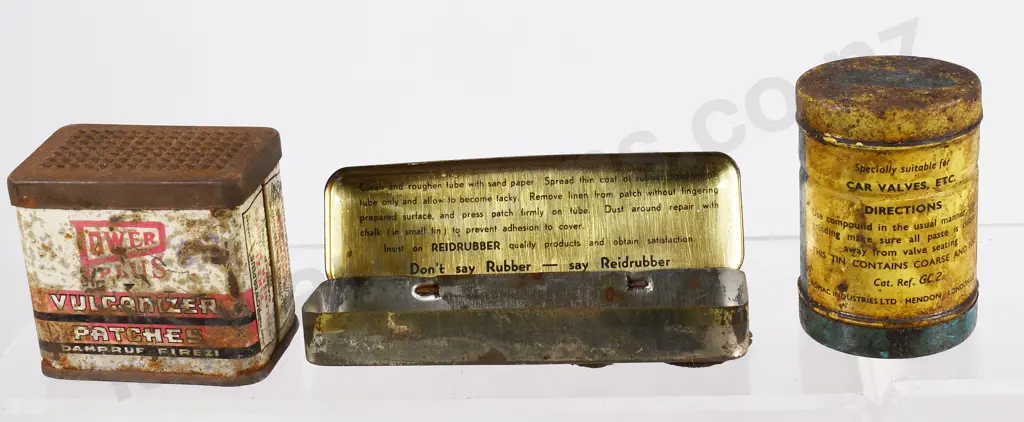 VULCANIZER
PATCHES
DAMP-RUF FIREZI
and roughen tube with sand paper. Spread thin coat of rubber
tube only and allow to become tacky. Remove linen from patch without fingering
prepared surface, and press patch firmly on tube. Dust around repair with
chalk (in small tin) to prevent adhesion to cover.
Insist on REIDRUBBER quality products and obtain satisfaction.
Don't say Rubber — say Reidrubber
Specially suitable for
CAR VALVES, ETC.
DIRECTIONS
Use compound in the usual manner
make sure all paste is
away from valve seating
THIS TIN CONTAINS COARSE AND
Cat. Ref. GC.2.
INDUSTRIES LTD · HENDON · LONDON